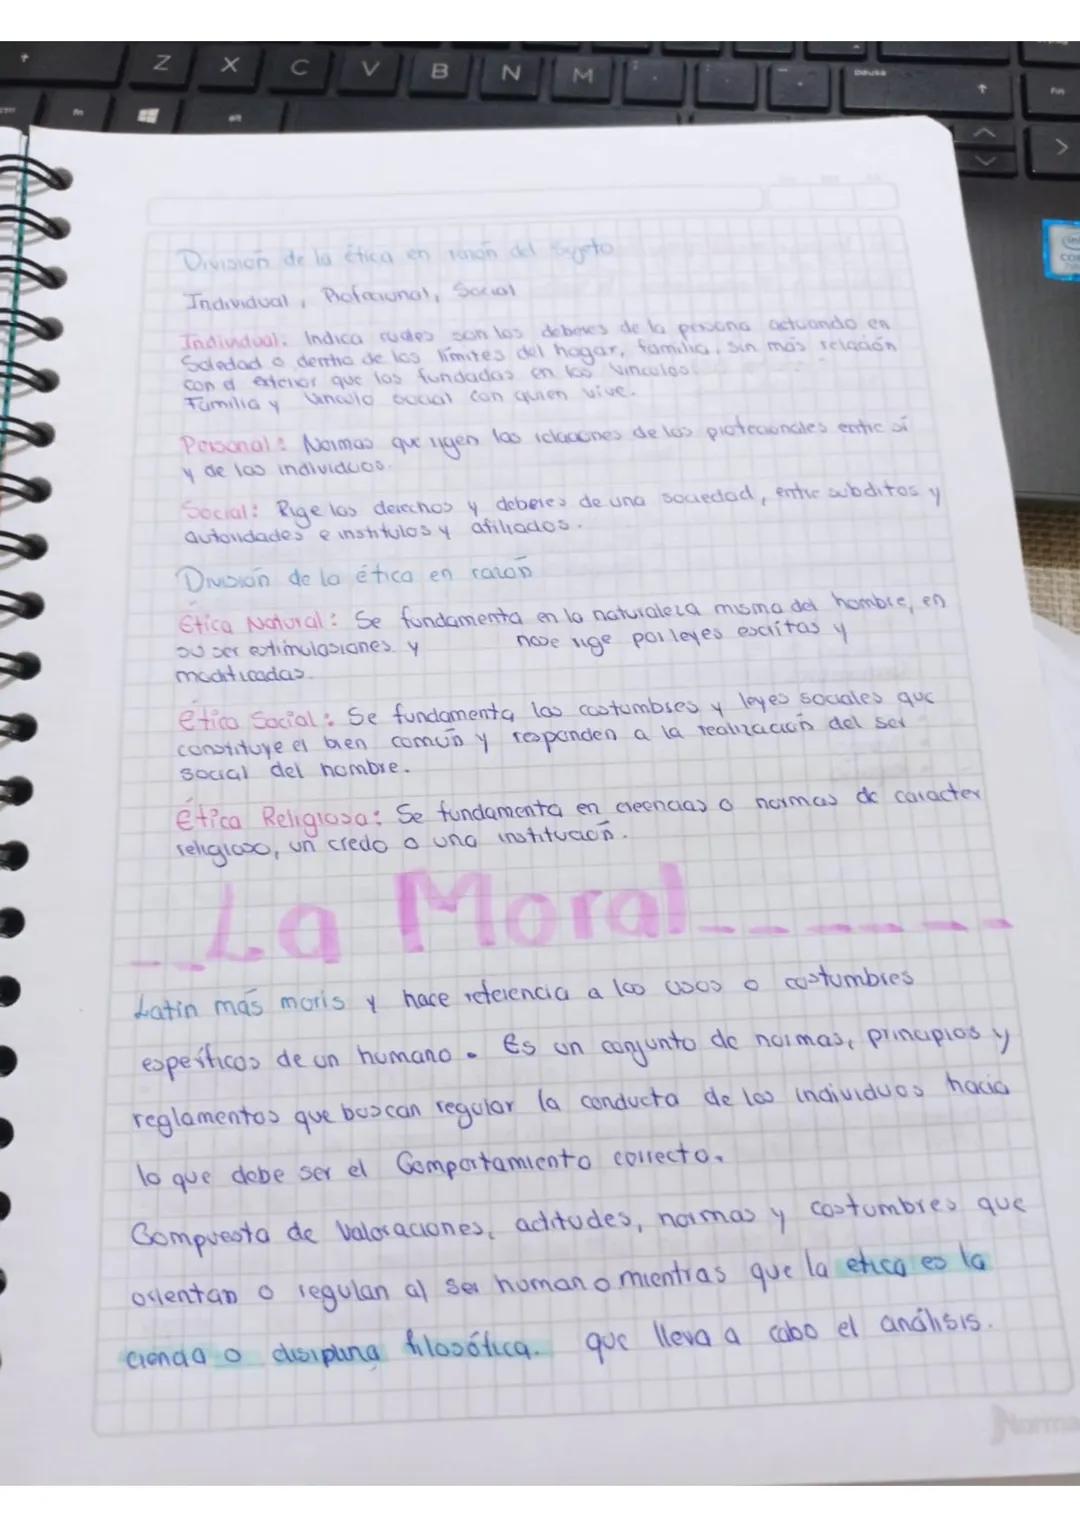 Z X C V B N M
pausa
fn
alt
fin
División de la ética en razón del sujeto
Individual, Profesional, Social
Individual: Indica cuales son los deberes de la persona actuando en
Soledad o dentro de los límites del hogar, familia, sin más relación
con el exterior que las fundadas en los vinculos
Familia y vinculo social con quien vive.
Personal: Normas que rigen las relaciones de los profecionales entre sí
y de los individuos.
Social: Rige los derechos y deberes de una sociedad, entre subditos y
autoridades e institulos y afiliados.
División de la ética en razón
Ética Natural: Se fundamenta en la naturaleza misma del hombre, en
su ser estimulasiones y nose rige por leyes escritas y
modificadas.
ética Social: Se fundamenta las costumbres y leyes sociales que
constituye el bien común y responden a la realización del ser
social del hombre.
ética Religiosa: Se fundamenta en creencias o normas de caracter
religioso, un credo o una institución.
La Moral
Latín más moris y hace referencia a los usos o costumbres
espesíficos de un humano. Es un conjunto de normas, principios y
reglamentos que buscan regular la conducta de los individuos hacia
lo que debe ser el Comportamiento correcto.
Compuesta de Valoraciones, actitudes, normas y costumbres que
orientan o regulan al ser humano mientras que la etica es la
ciencia o disiplina filosófica. que lleva a cabo el análisis.
Norma